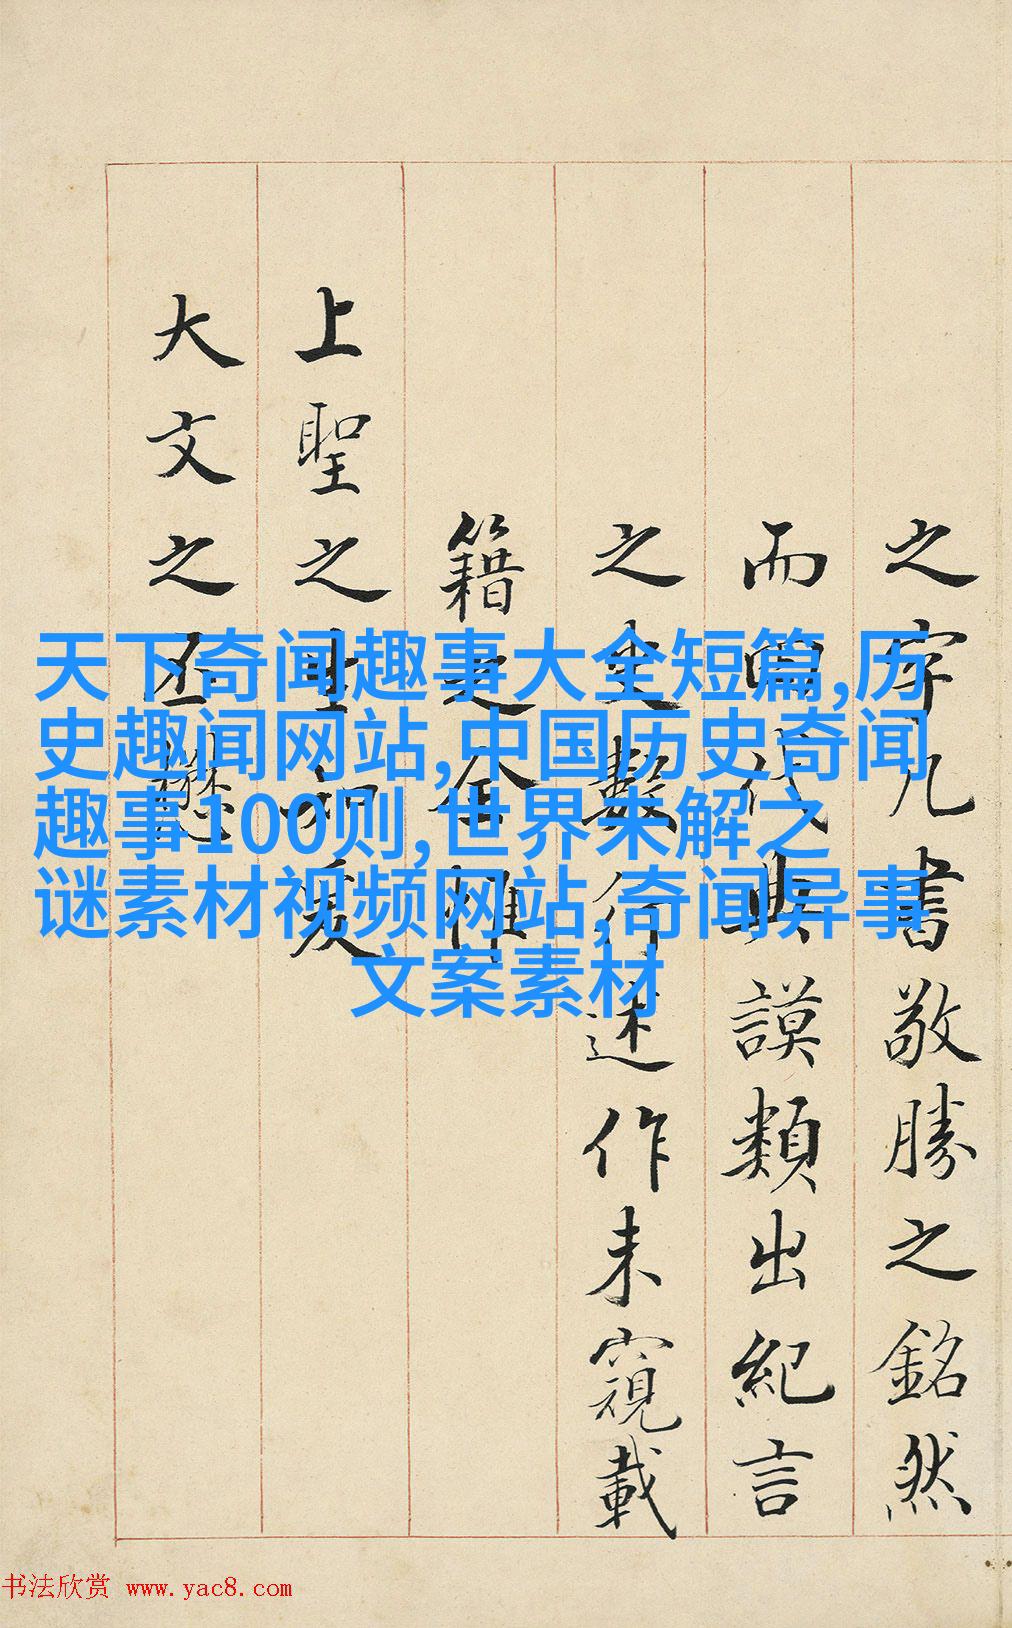 之字几書敬勝之銘然
而四代典謨類出紀言
之史數行述作未窺載
籍之全惟
上聖之生知爰
大文之丕懋
天下奇闻趣事大全短篇,历
史趣闻网站,中国历史奇闻
趣事100则,世界未解之
谜素材视频网站,奇闻异事
文案素材
书法欣赏 www.yac8.com